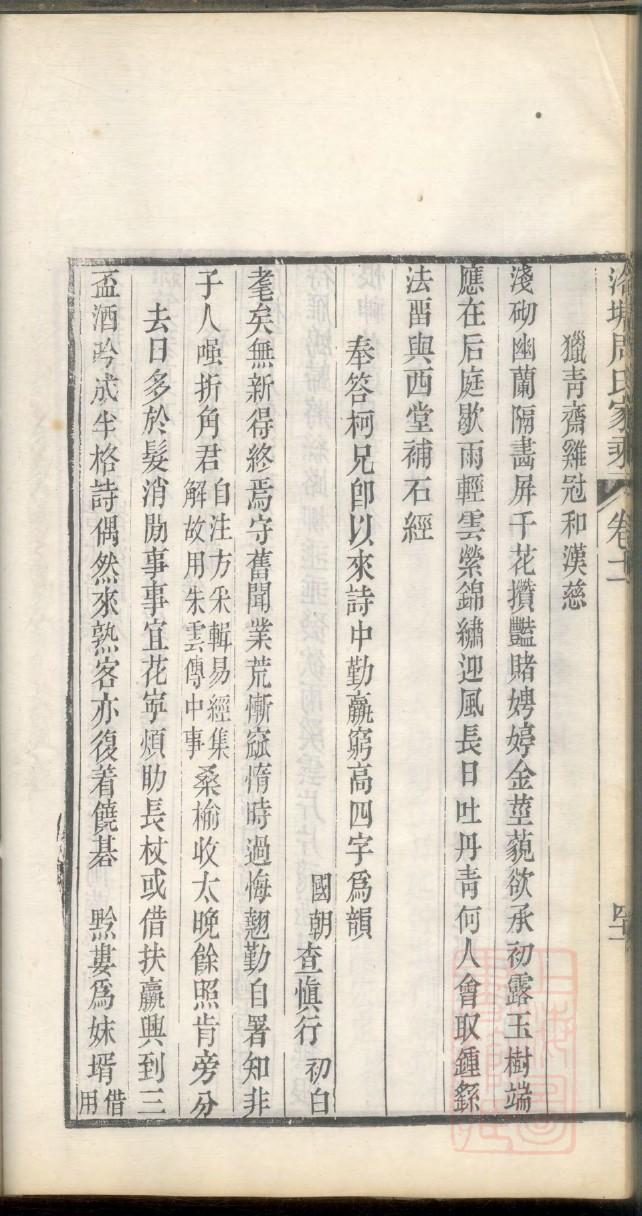 周氏家乘 卷十一
獵青齋雞冠和漢慈
淺砌幽蘭隔畵屏千花攢豔賭娉婷金莖藐欲承初露玉樹端
應在后庭歇雨輕雲縈錦繡迎風長日吐丹青何人會取鍾繇
法畱與西堂補石經
奉答柯兄卽以來詩中勤羸窮高四字爲韻
國朝查愼行初白
耄矣無新得終焉守舊聞業荒慚窳惰時過悔翹勤自署知非
子人嗤折角君自注方采輯易經集解故用朱雲傳中事桑榆收太晚餘照肯旁分
去日多於髮消閒事事宜花寧煩助長杖或借扶羸興到三
盃酒吟成半格詩偶然來熟客亦復着饒棊 黔婁爲妹壻借用